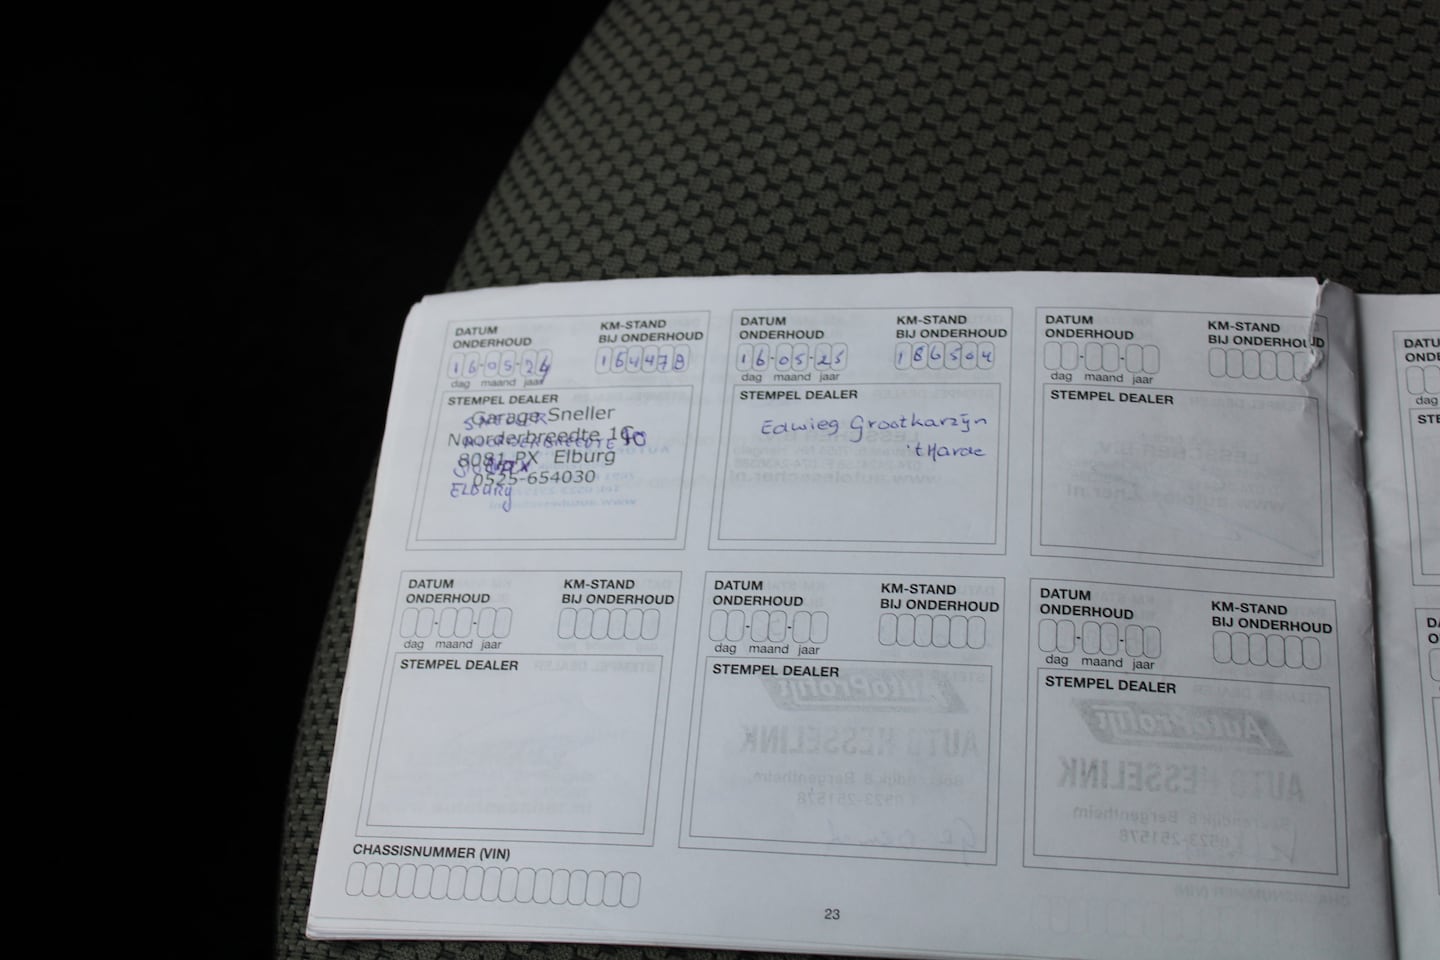 DATUM
ONDERHOUD
KM-STAND
BIJ ONDERHOUD
16-05-24
164478
dag maand jaar
STEMPEL DEALER
Garage Sneller
SNELLER
Noorderbreedte 10
NOORDERBREEDTE 10
8081 PX Elburg
0525-654030
ELBURG
DATUM
ONDERHOUD
KM-STAND
BIJ ONDERHOUD
16-05-25
186504
dag maand jaar
STEMPEL DEALER
Edwieg Grootkarzijn
't Harde
DATUM
ONDERHOUD
KM-STAND
BIJ ONDERHOUD
dag maand jaar
STEMPEL DEALER
DATUM
ONDERHOUD
KM-STAND
BIJ ONDERHOUD
dag maand jaar
STEMPEL DEALER
DATUM
ONDERHOUD
KM-STAND
BIJ ONDERHOUD
dag maand jaar
STEMPEL DEALER
AutoProfijt
AUTO HESSELINK
0523-251578
DATUM
ONDERHOUD
KM-STAND
BIJ ONDERHOUD
dag maand jaar
STEMPEL DEALER
AutoProfijt
AUTO HESSELINK
Bergentheim
0523-251578
CHASSISNUMMER (VIN)
23